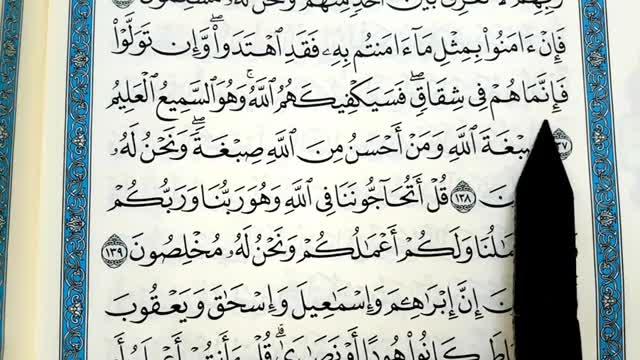 فَإِنْ ءَامَنُوا۟ بِمِثْلِ مَآ ءَامَنتُم بِهِۦ فَقَدِ ٱهْتَدَوا۟ ۖ وَّإِن تَوَلَّوْا۟
فَإِنَّمَا هُمْ فِى شِقَاقٍ ۖ فَسَيَكْفِيكَهُمُ ٱللَّهُ ۚ وَهُوَ ٱلسَّمِيعُ ٱلْعَلِيمُ
١٣٧ صِبْغَةَ ٱللَّهِ وَمَنْ أَحْسَنُ مِنَ ٱللَّهِ صِبْغَةً ۖ وَنَحْنُ لَهُۥ
١٣٨ قُلْ أَتُحَآجُّونَنَا فِى ٱللَّهِ وَهُوَ رَبُّنَا وَرَبُّكُمْ
وَلَكُمْ أَعْمَٰلُكُمْ وَنَحْنُ لَهُۥ مُخْلِصُونَ ١٣٩
إِنَّ إِبْرَٰهِۦمَ وَإِسْمَٰعِيلَ وَإِسْحَٰقَ وَيَعْقُوبَ
كَانُوا۟ هُودًا أَوْ نَصَٰرَىٰ ۗ قُلْ ءَأَنتُمْ أَعْلَمُ أَمِ